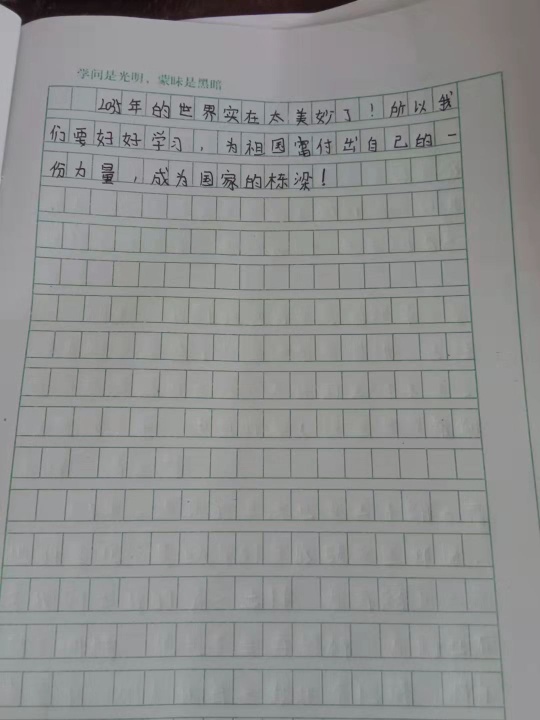 学问是光明，蒙昧是黑暗
2035年的世界实在太美妙了！所以我
们要好好学习，为祖国需付出自己的一
份力量，成为国家的栋梁！